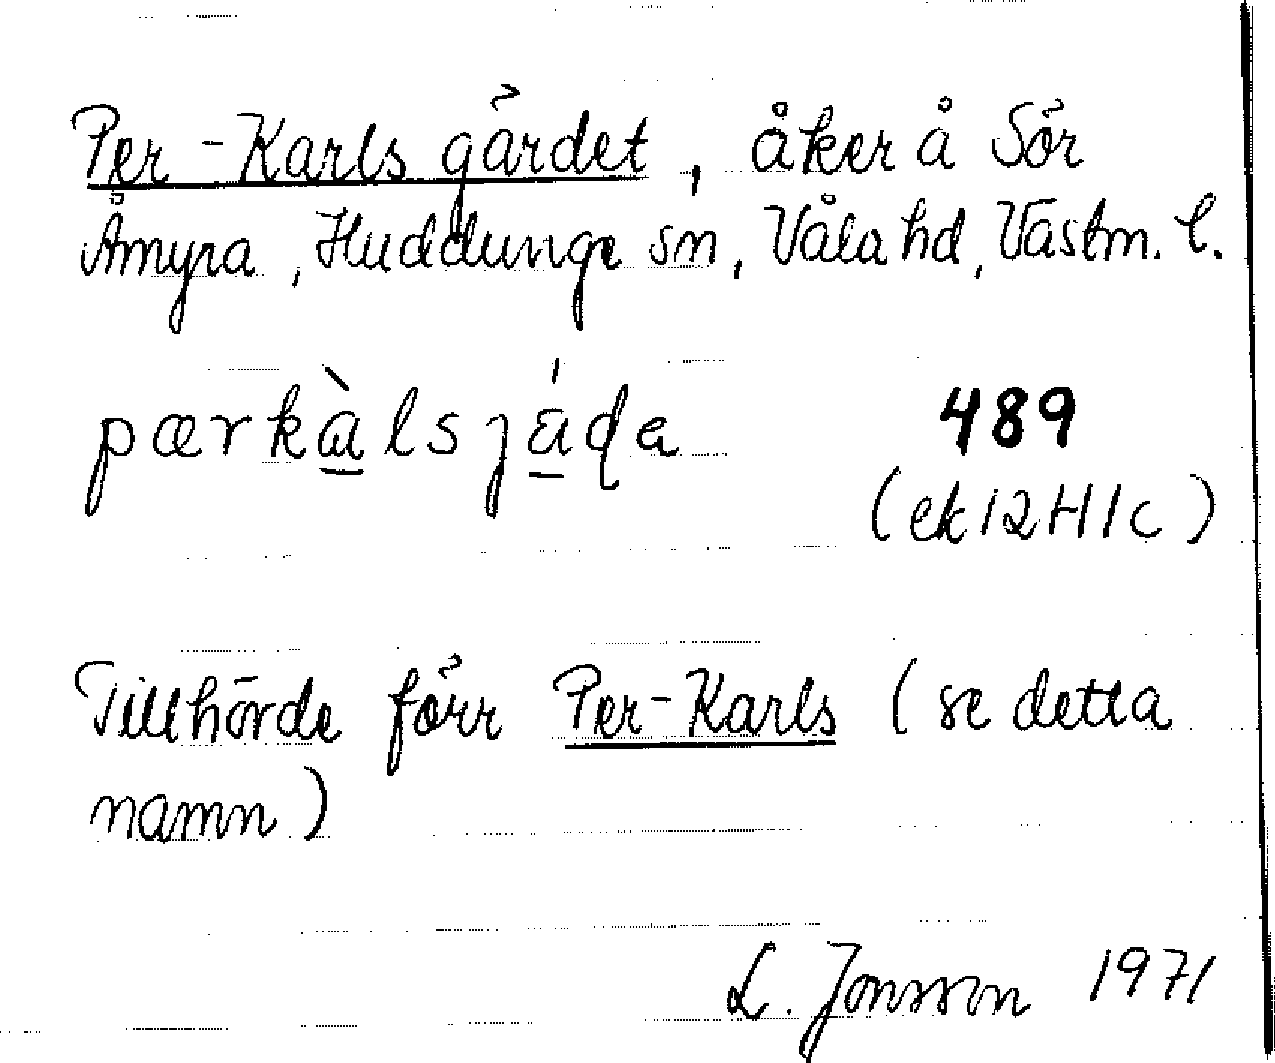 Per-Karls gärdet, åker å Sör
Åmyra, Huddunge sn, Våla hd, Västm. l.
pærkàlsjáɖa 489
(ek 12H1c)
Tillhörde förr Per-Karls (se detta
namn)
L. Jonsson 1971